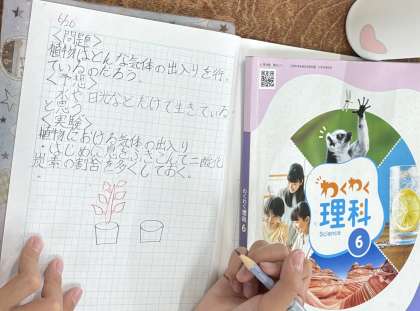 6/20
〈問題〉
植物はどんな気体の出入りを行
っているのだろう。
〈予想〉
水や日光などだけで生きている
と思う。
〈実験〉
植物における気体の出入り
・はじめに息をふきこんで二酸化
炭素の割合を多くしておく。
わくわく
理科
Science
6
わくわく理科 6